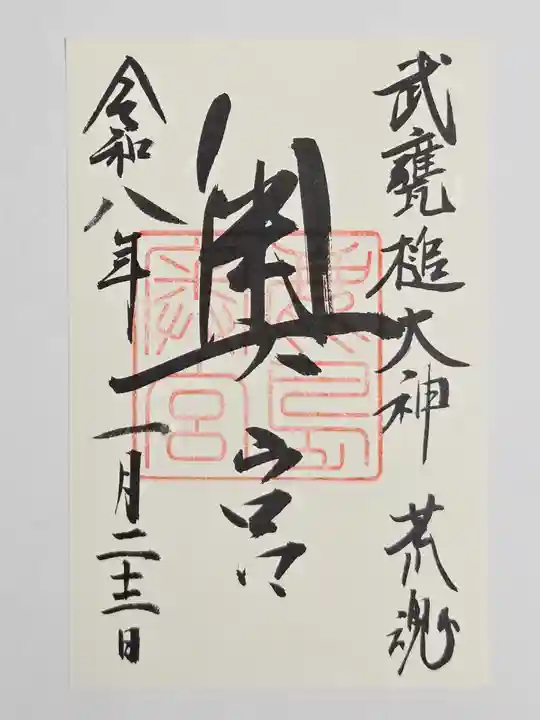 武甕槌大神 荒魂
奥宮
鹿島奥宮
令和八年一月二十三日